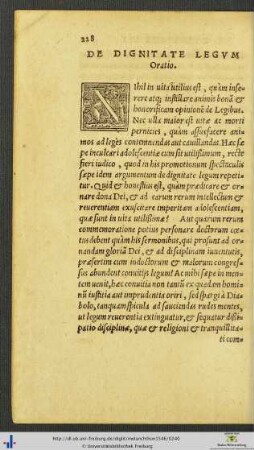 228
DE DIGNITATE LEGVM
Oratio.
NIhil in uita utilius est, quàm inse-
rere atq; instillare animis bonã &
honorificam opinionẽ de Legibus.
Nec ulla maior est uitæ ac morū
pernicies, quàm assuefacere ani-
mos ad leges contemnendas aut cauillandas. Hæc sæ
pe inculcari adolescentiæ cum sit utilissimum, recte
fieri iudico, quod in his promotionum spectaculis
sæpe idem argumentum de dignitate legum repeti-
tur. Quid & honestius est, quàm prædicare et or
nare dona Dei, & ad earum rerum intellectum &
reuerentiam exuscitare imperitam adolescentiam,
quæ sunt in uita utilissimæ? Aut quorum rerum
commemoratione potius personare doctorum cœ-
tus debent quàm his sermonibus, qui prosunt ad or-
nandam gloriā Dei, & ad disciplinam iuuentutis,
præsertim cum indoctorum & malorum congres-
sus abundent conuitijs legum? Ac mihi sæpe in men-
tem uenit, hæc conuitia non tantū ex quodam homi-
nū iustitia aut imprudentia oriri, sed spargi à Dia-
bolo, tanquam spicula ad sauciendas rudes mentes,
ut legum reuerentia extinguatur, & sequatur dissi-
patio disciplinæ, quæ & religioni & tranquillita-
ti com-
http://dl.ub.uni-freiburg.de/diglit/melanchthon1546/0240
© Universitätsbibliothek Freiburg